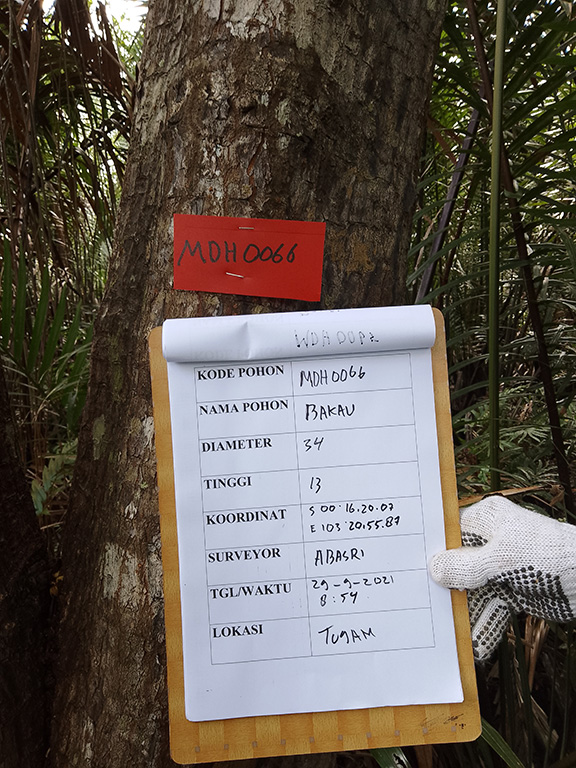 MDH0066
KODE POHON MDH0066
NAMA POHON BAKAU
DIAMETER 34
TINGGI 13
KOORDINAT S 00°16.20.07
E 103°20.55.87
SURVEYOR ABASRI
TGL/WAKTU 29-9-2021
8:54
LOKASI TUGAM